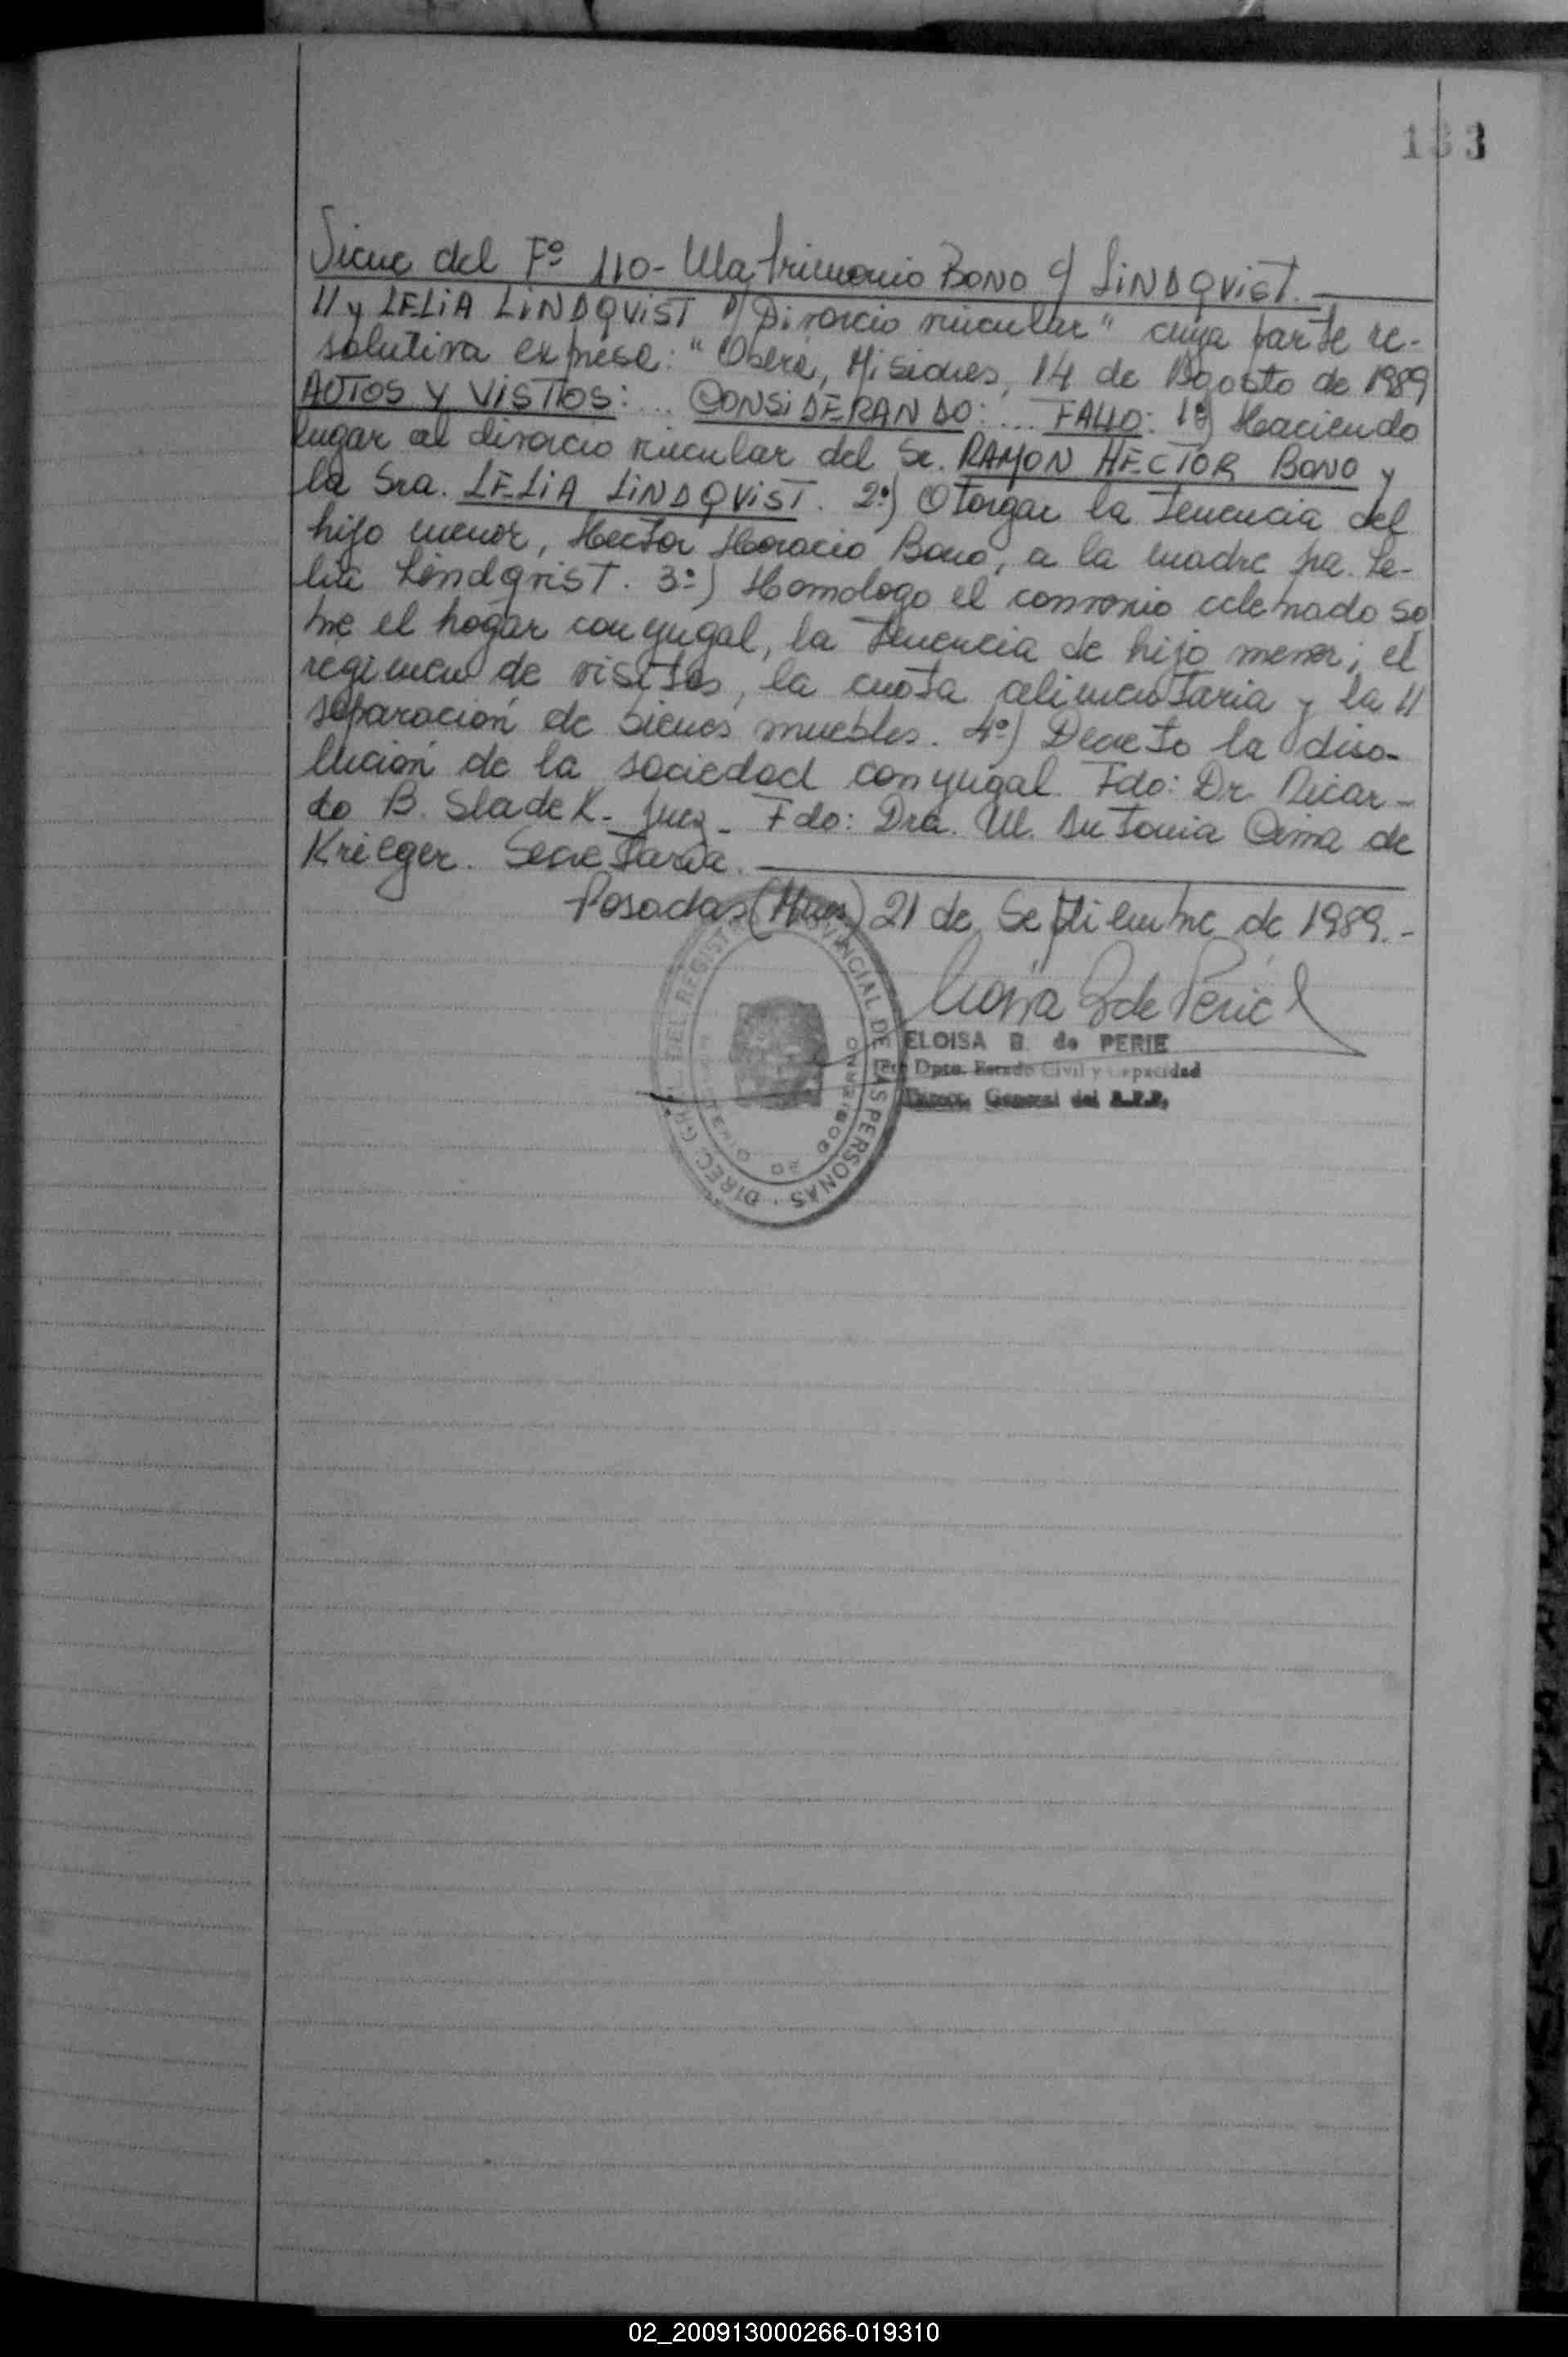 133
Sigue del Fº 110- Matrimonio BONO c/ LINDQVIST.
// y LELIA LINDQVIST s/ Divorcio vincular" cuya parte re-
solutiva expresa: "Oberá, Misiones, 14 de Agosto de 1989
AUTOS Y VISTOS: ... CONSIDERANDO: ... FALLO: 1º) Haciendo
lugar al divorcio vincular del Sr. RAMON HECTOR BONO y
la Sra. LELIA LINDQVIST. 2º) Otorgar la tenencia del
hijo menor, Hector Horacio Bono, a la madre Sra. Le-
lia Lindqvist. 3º) Homologo el convenio celebrado so
bre el hogar conyugal, la tenencia de hijo menor, el
regimen de visitas, la cuota alimentaria y la //
separación de bienes muebles. 4º) Decreto la diso-
lución de la sociedad conyugal. Fdo: Dr. Ricar-
do B. Sladek- Juez- Fdo: Dra. M. Antonia Cima de
Krieger. Secretaria.
Posadas (Mnes) 21 de Septiembre de 1989.-
ELOISA B. de PERIE
Dpto. Estado Civil y Capacidad
Direcc. General del R.P.P.
DIREC. GRAL. DEL REGISTRO PROVINCIAL DE LAS PERSONAS
02_200913000266-019310